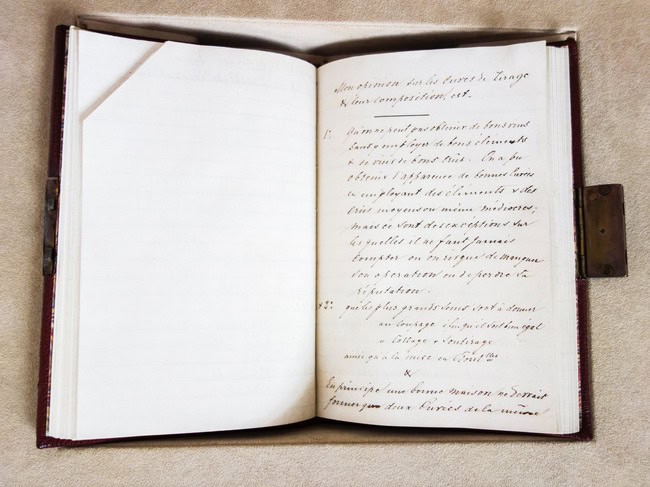 Mon opinion sur les cuvées de Tirage
& leur composition, est.
1º Qu'on ne peut pas obtenir de bons vins
sans employer de bons éléments
& de vins de bons crûs. On a pu
obtenir l'apparence de bonnes Cuvées
en employant des éléments & des
crûs moyens ou même médiocres;
mais ce sont des exceptions sur
lesquelles il ne faut jamais
compter ou on risque de manquer
son opération ou de perdre sa
réputation.
& 2º que les plus grands soins sont à donner
au coupage
Collage & Soutirage
ainsi qu'à la mise en Bout^lles
&
En principe une bonne maison ne devrait
former que deux Cuvées de la même